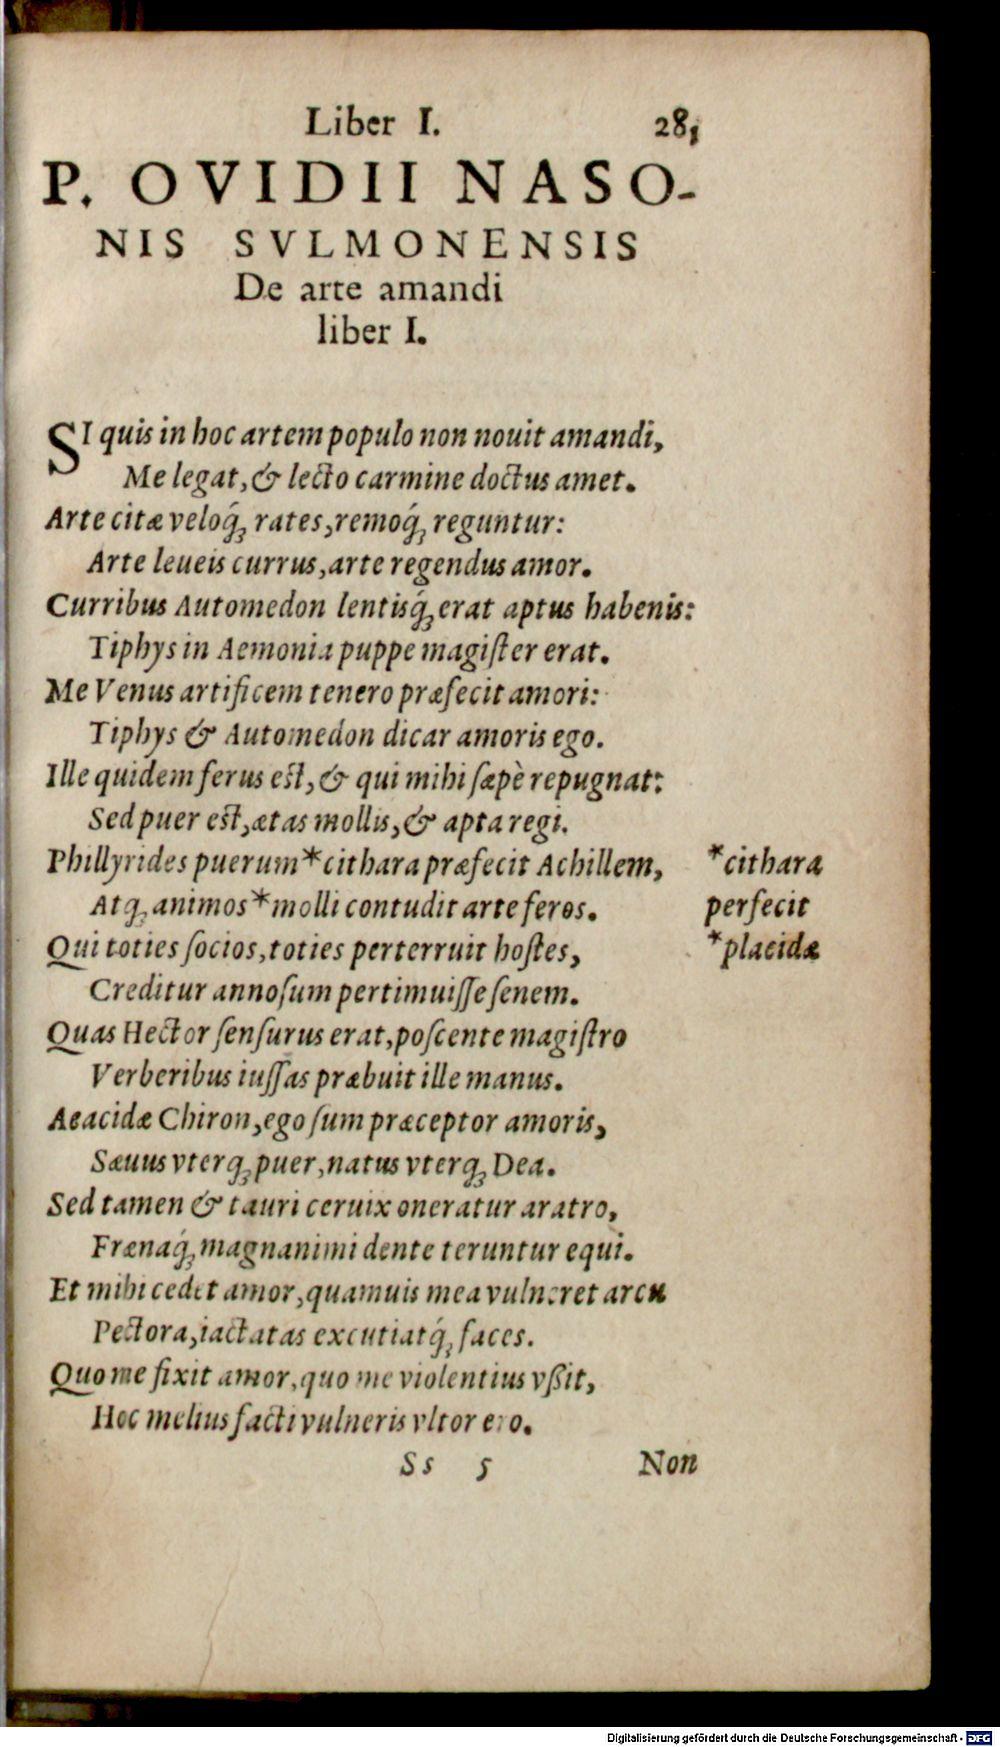 Liber I. 281
P. OVIDII NASO-
NIS SVLMONENSIS
De arte amandi
liber I.
SI quis in hoc artem populo non nouit amandi,
Me legat, & lecto carmine doctus amet.
Arte citæ veloq́; rates, remoq́; reguntur:
Arte leueis currus, arte regendus amor.
Curribus Automedon lentisq́; erat aptus habenis:
Tiphys in Aemonia puppe magiſter erat.
Me Venus artificem tenero præfecit amori:
Tiphys & Automedon dicar amoris ego.
Ille quidem ferus eſt, & qui mihi ſæpè repugnat:
Sed puer eſt, ætas mollis, & apta regi.
Phillyrides puerum *cithara præfecit Achillem, *cithara
Atq; animos *molli contudit arte feros. perfecit
Qui toties ſocios, toties perterruit hoſtes, *placidæ
Creditur annoſum pertimuiſſe ſenem.
Quas Hector ſenſurus erat, poſcente magiſtro
Verberibus iuſſas præbuit ille manus.
Aeacidæ Chiron, ego ſum præceptor amoris,
Sæuus vterq; puer, natus vterq; Dea.
Sed tamen & tauri ceruix oneratur aratro,
Frænaq́; magnanimi dente teruntur equi.
Et mihi cedet amor, quamuis mea vulneret arcu
Pectora, iactatas excutiatq́; faces.
Quo me fixit amor, quo me violentius vßit,
Hoc melius facti vulneris vltor ero.
Ss 5 Non
Digitalisierung gefördert durch die Deutsche Forschungsgemeinschaft - DFG